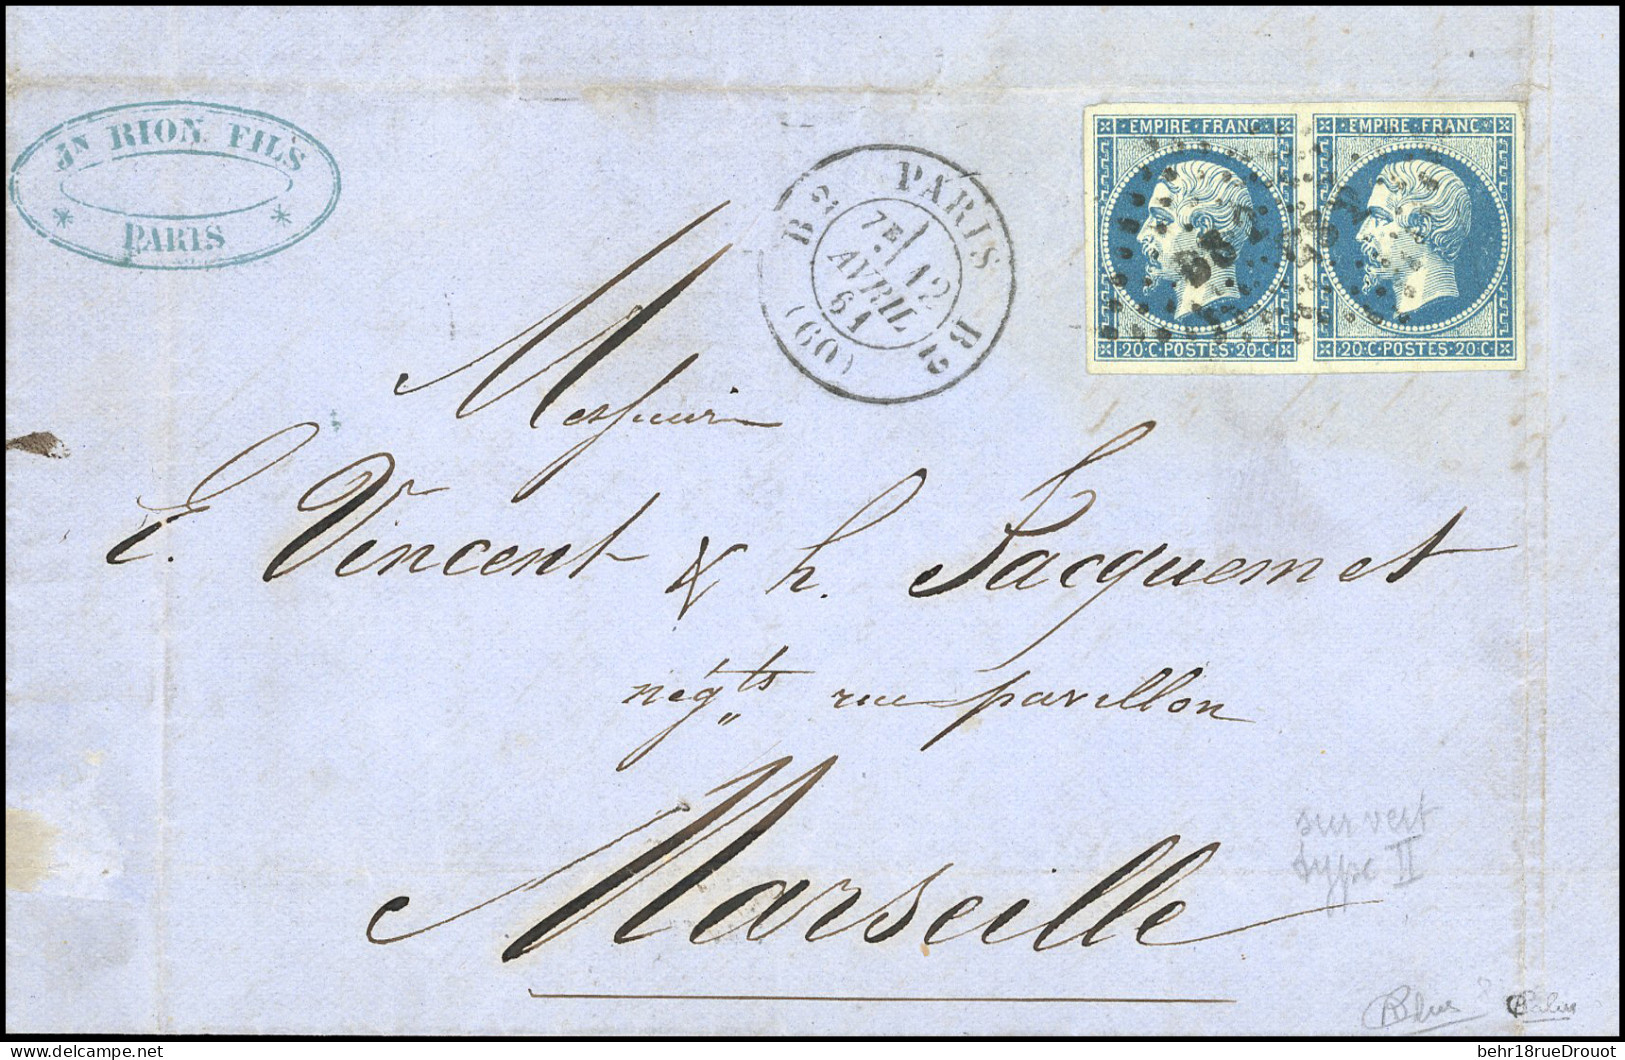 JN RION FILS
PARIS
PARIS B2
B2
7E
12
AVRIL
61
(60)
EMPIRE·FRANC
EMPIRE·FRANC
20·C·POSTES·20·C
20·C·POSTES·20·C
Messieurs
E. Vincent & h. Jacquemet
négts rue pavillon
Marseille
sur vert
type II
delcampe.net
behr18rueDrouot